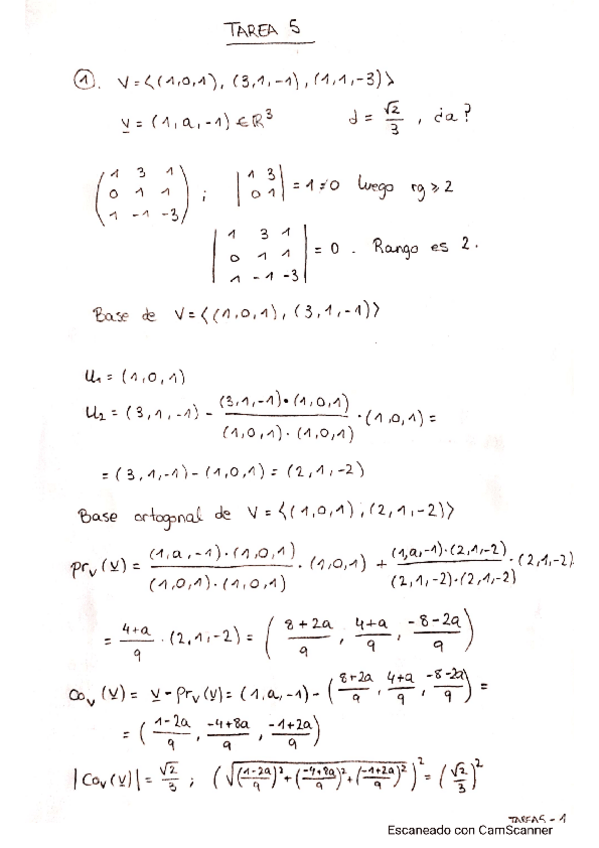 TAREA 5
①. V=<(1,0,1), (3,1,-1), (1,1,-3)>
v=(1,a,-1)∈ℝ³ d=√2/3, ¿a?
(1 3 1
0 1 1
1 -1 -3); |1 3
0 1| =1≠0 luego rg≥2
|1 3 1
0 1 1
1 -1 -3| = 0. Rango es 2.
Base de V=<(1,0,1), (3,1,-1)>
u₁=(1,0,1)
u₂=(3,1,-1) - (3,1,-1)·(1,0,1)/(1,0,1)·(1,0,1) ·(1,0,1)=
=(3,1,-1)-(1,0,1)=(2,1,-2)
Base ortogonal de V=<(1,0,1),(2,1,-2)>
prᵥ(v)= (1,a,-1)·(1,0,1)/(1,0,1)·(1,0,1) ·(1,0,1) + (1,a,-1)·(2,1,-2)/(2,1,-2)·(2,1,-2) ·(2,1,-2)
= 4+a/9 ·(2,1,-2)= (8+2a/9, 4+a/9, -8-2a/9)
coᵥ(v)= v-prᵥ(v)=(1,a,-1)-(8+2a/9, 4+a/9, -8-2a/9)=
= (1-2a/9, -4+8a/9, -1+2a/9)
|coᵥ(v)|=√2/3; (√((1-2a/9)²+(-4+8a/9)²+(-1+2a/9)²))²=(√2/3)²
TAREA5 - 1
Escaneado con CamScanner